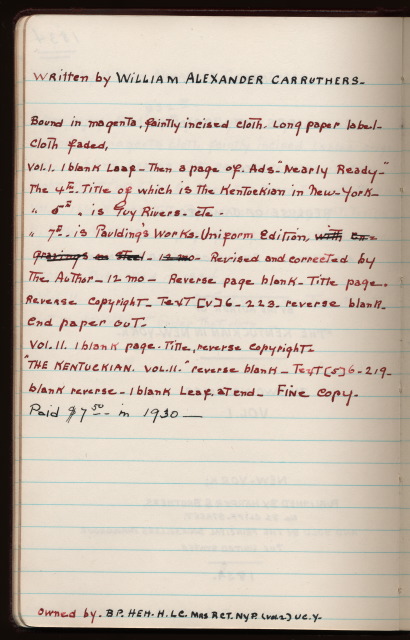 Written by WILLIAM ALEXANDER CARRUTHERS-
Bound in magenta, faintly incised cloth. Long paper label-
Cloth faded,
Vol. I. 1 blank Leaf - Then a page of Ads-"Nearly Ready-"
The 4th Title of which is The Kentuckian in New-York-
" 5th " is Guy Rivers. etc-
" 7th - is Paulding's Works. Uniform Edition, with Eng-
gravings on Steel - 12 mo - Revised and corrected by
The Author - 12 mo - Reverse page blank - Title page.
Reverse Copyright - Text [V] 6 - 223. reverse blank.
End paper out-
Vol. II. 1 blank page. Title, reverse copyright-
"THE KENTUCKIAN. VOL. II." reverse blank - Text [5] 6 - 219-
blank reverse - 1 blank Leaf, at end - Fine copy.
Paid $7 50 - in 1930 -
Owned by. BP. HEH. H. LC. MAS RCT. NYP. (Vol 2) UC. Y-